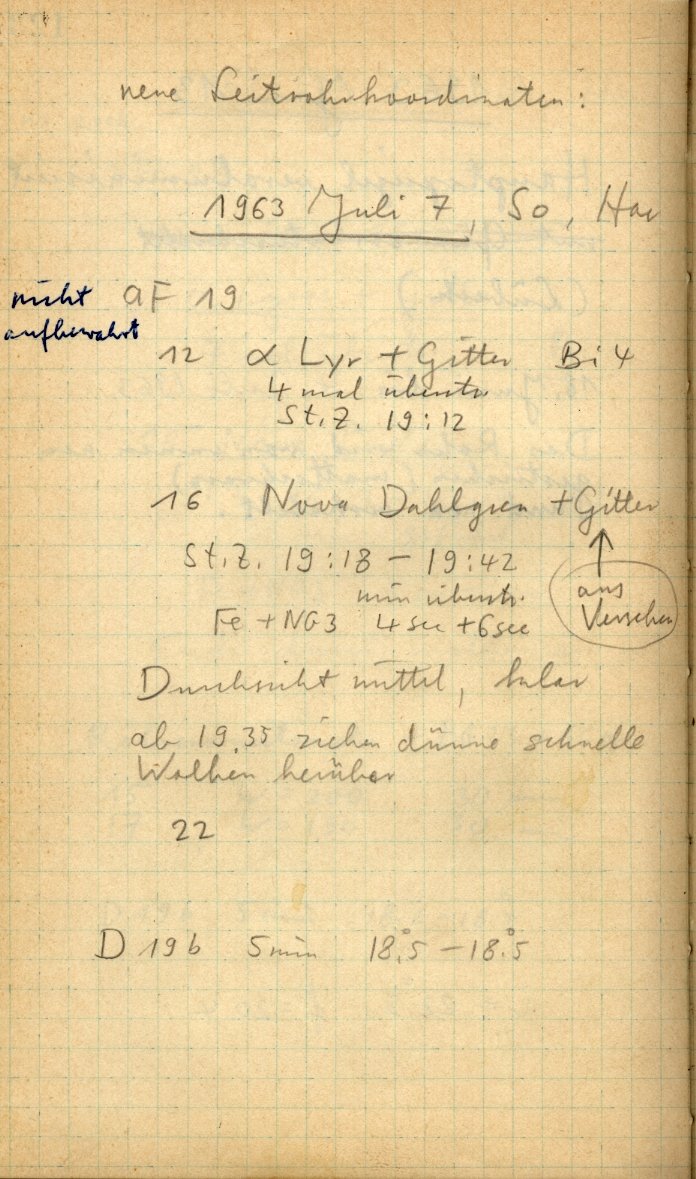 neue Leitrohrkoordinaten:
1963 Juli 7, So, Hau
nicht aF 19
aufbewahrt
12 α Lyr + Gitter Bi 4
4 mal überstr.
St.Z. 19:12
16 Nova Dahlgren + Gitter
St.Z. 19:18 – 19:42
↑
aus
Versehen
min überstr.
Fe + NG3 4sec + 6sec
Durchsicht mittel, klar
ab 19.35 ziehen dünne schnelle
Wolken herüber
22
D 19b 5min 18°.5 – 18°.5